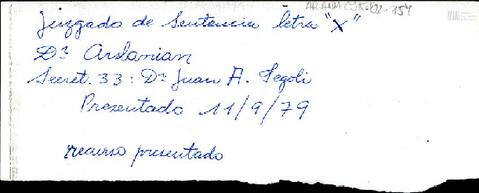 Juzgado de Sentencia letra "X"
Dr. Arslanian
Secret. 33: Dr Juan A. Segoli
Presentado 11/9/79
recurso presentado